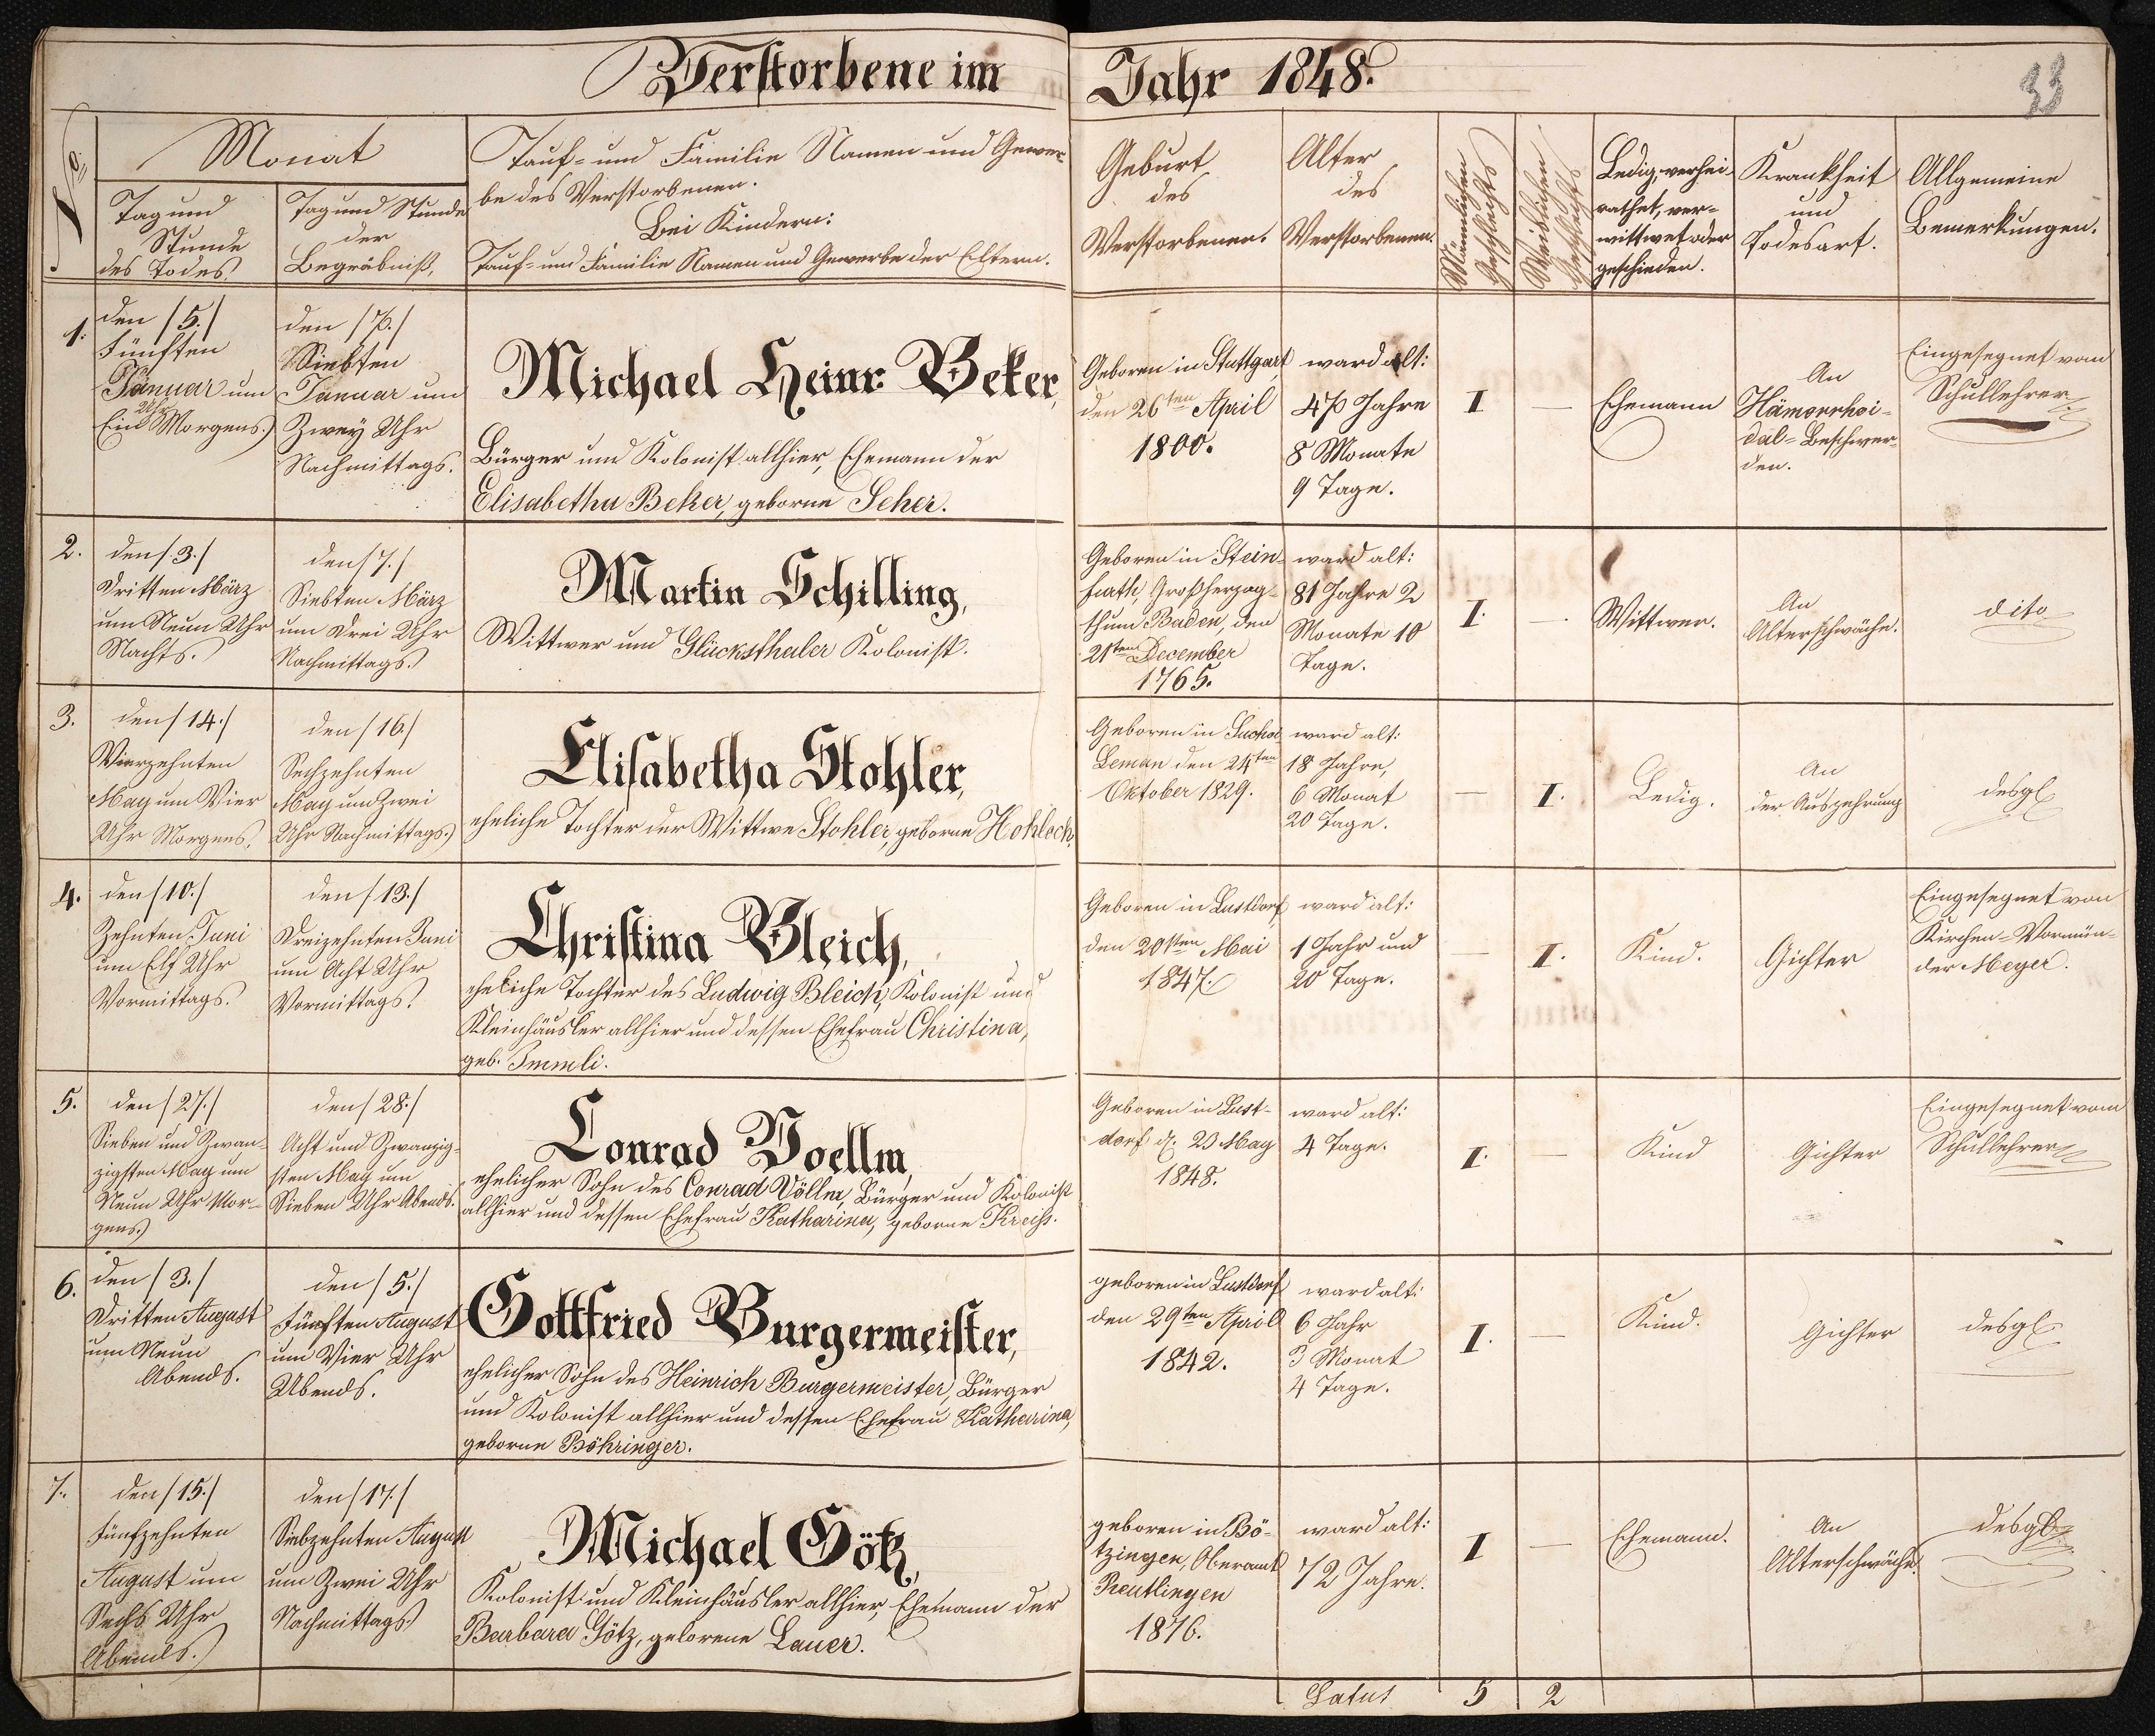 Verstorbene im Jahr 1848.
33
No.
Monat
Tag und
Stunde
des Todes
Tag und Stunde
der
Begräbniß.
Tauf- und Familie Namen und Gewer-
be des Verstorbenen.
Bei Kindern:
Tauf- und Familie Namen und Gewerbe der Eltern.
Geburt
des
Verstorbenen.
Alter
des
Verstorbenen.
Männlichen
Geschlechts
Weiblichen
Geschlechts
Ledig, verhei-
rathet, ver-
wittwet oder
geschieden.
Krankheit
und
Todesart.
Allgemeine
Bemerkungen.
1.
den /5./
Fünften
Januar um
Ein Uhr Morgens.)
den /7./
Siebten
Januar um
Zwey Uhr
Nachmittags.
Michael Heinr: Beker,
Bürger und Kolonist allhier, Ehemann der
Elisabetha Beker, geborne Seher.
Geboren in Stuttgart
den 26ten April
1800.
ward alt:
47 Jahre
8 Monate
9 Tage.
I
—
Ehemann
An
Hämorrhoi-
dal-Beschwer-
den.
Eingesegnet vom
Schullehrer
2.
den /3./
Dritten März
um Neun Uhr
Nachts.
den /7./
Siebten März
um Drei Uhr
Nachmittags.
Martin Schilling,
Wittwer und Glücksthaler Kolonist.
Geboren in Stein-
furth, Großherzog-
thum Baden, den
21ten December
1765.
ward alt:
81 Jahre 2
Monate 10
Tage.
I.
—
Wittwer.
An
Alterschwäche.
dito
3.
den /14./
Vierzehnten
May um Vier
Uhr Morgens.
den /16/
Sechzehnten
May um Zwei
Uhr Nachmittags.)
Elisabetha Stohler,
eheliche Tochter der Wittwe Stohler, geborne Hohloch.
Geboren in Suchoi
Leman den 24ten
Oktober 1829.
ward alt:
18 Jahre,
6 Monat
20 Tage.
—
I.
Ledig.
An
der Auszehrung
desgl
4.
den /10./
Zehnten Juni
um Elf Uhr
Vormittags.
den /13./
Dreizehnten Juni
um Acht Uhr
Vormittags.
Christina Bleich,
eheliche Tochter des Ludwig Bleich, Kolonist und
Kleinhäusler allhier und dessen Ehefrau Christina,
geb. Immli.
Geboren in Lustdorf
den 20sten Mai
1847.
ward alt:
1 Jahr und
20 Tage.
—
I.
Kind.
Gichter
Eingesegnet von
Kirchen-Vormün-
der Meyer.
5.
den /27./
Sieben und Zwan-
zigsten May um
Neun Uhr Mor-
gens)
den /28./
Acht und Zwanzig-
sten May um
Sieben Uhr Abends.
Conrad Voellm,
ehelicher Sohn des Conrad Völlm, Bürger und Kolonist
allhier und dessen Ehefrau Katharina, geborne Kreiß.
Geboren in Lust-
dorf d. 23 May
1848.
ward alt:
4 Tage.
I.
—
Kind
Gichter
Eingesegnet vom
Schullehrer
6.
den /3./
Dritten August
um Neun
Abends.
den /5./
Fünften August
um Vier Uhr
Abends.
Gottfried Burgermeister,
ehelicher Sohn des Heinrich Burgermeister, Bürger
und Kolonist allhier und dessen Ehefrau Katharina,
geborne Böhringer.
geboren in Lustdorf
den 29ten April
1842.
ward alt:
6 Jahr
3 Monat
4 Tage.
I.
—
Kind.
Gichter
desgl
7.
den /15./
Fünfzehnten
August um
Sechs Uhr
Abends.)
den /17./
Siebzehnten August
um Zwei Uhr
Nachmittags)
Michael Götz,
Kolonist und Kleinhäusler allhier, Ehemann der
Barbara Götz, geborene Lauer.
geboren in Bö-
tzingen, Oberamt
Reutlingen
1876.
ward alt:
72 Jahre.
I
—
Ehemann.
An
Alterschwäche.
desgl.
Latus 5 2